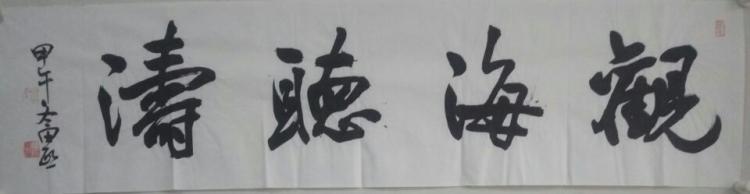 觀海聽濤
甲午